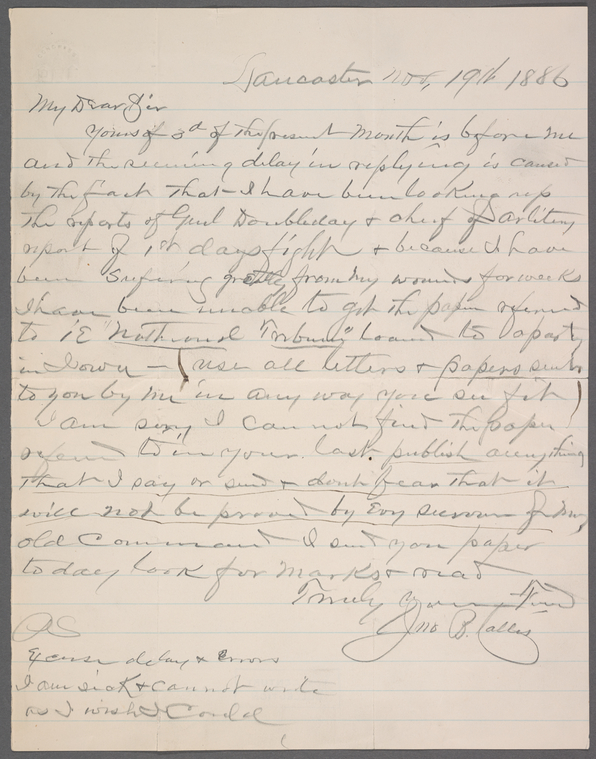 Lancaster Nov, 19th 1886
My Dear Sir
Yours of 3d of the present Month is before me
and the seeming delay in replying is caused
by the fact that I have been looking up
the reports of Genl Doubleday & chief of Artilery
report of 1st days fight & because I have
been Sufering greatly from my wounds for weeks
I have been unable to get the paper refered
to i E "National Tribune" loaned to a party
in Iowa — (use all letters & papers sent
to you by me in any way you see fit)
I am sory I can not find the paper
refered to in your last. publish anything
that I say or send & dont fear that it
will not be proved by Evry survivor of my
old Command I send you paper
to day look for Marks & read
Truly your Friend
Jno B. Callis
PS
Excuse delay & Errors
I am sick & cannot write
as I wish I Could